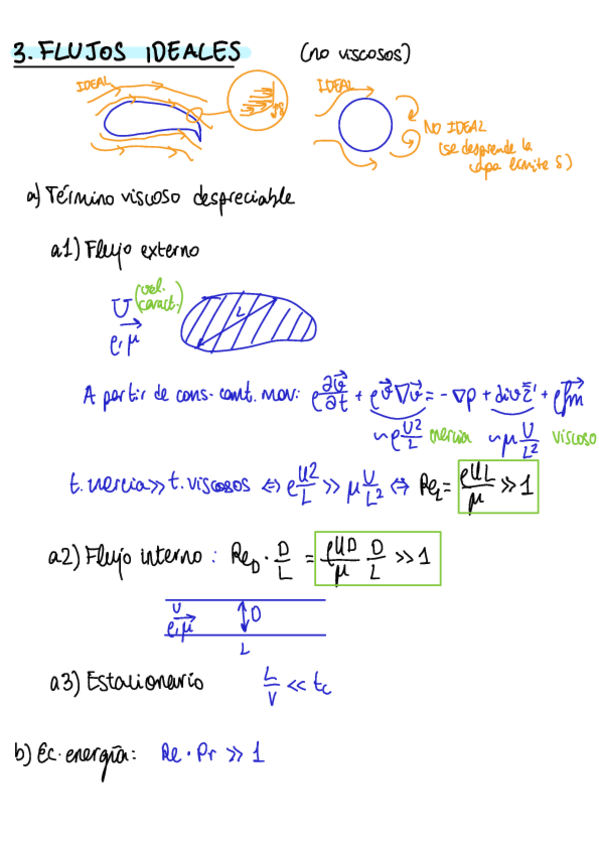 3. FLUJOS IDEALES (no viscosos)
IDEAL
IDEAL
NO IDEAL
(se desprende la
capa límite δ)
a) Término viscoso despreciable
a1) Flujo externo
U (vel. caract.)
L
ρ, μ
A partir de cons. cant. mov: ρ ∂v⃗/∂t + ρ v⃗ ∇v⃗ = -∇p + div τ̿' + ρ f⃗m
~ρ U²/L inercia ~μ U/L² viscoso
t. inercia >> t. viscosos ⇔ ρ U²/L >> μ U/L² ⇔ Re_L = ρUL/μ >> 1
a2) Flujo interno : Re_D · D/L = ρUD/μ D/L >> 1
U
ρ, μ D
L
a3) Estacionario L/V << tc
b) Ec. energía: Re · Pr >> 1